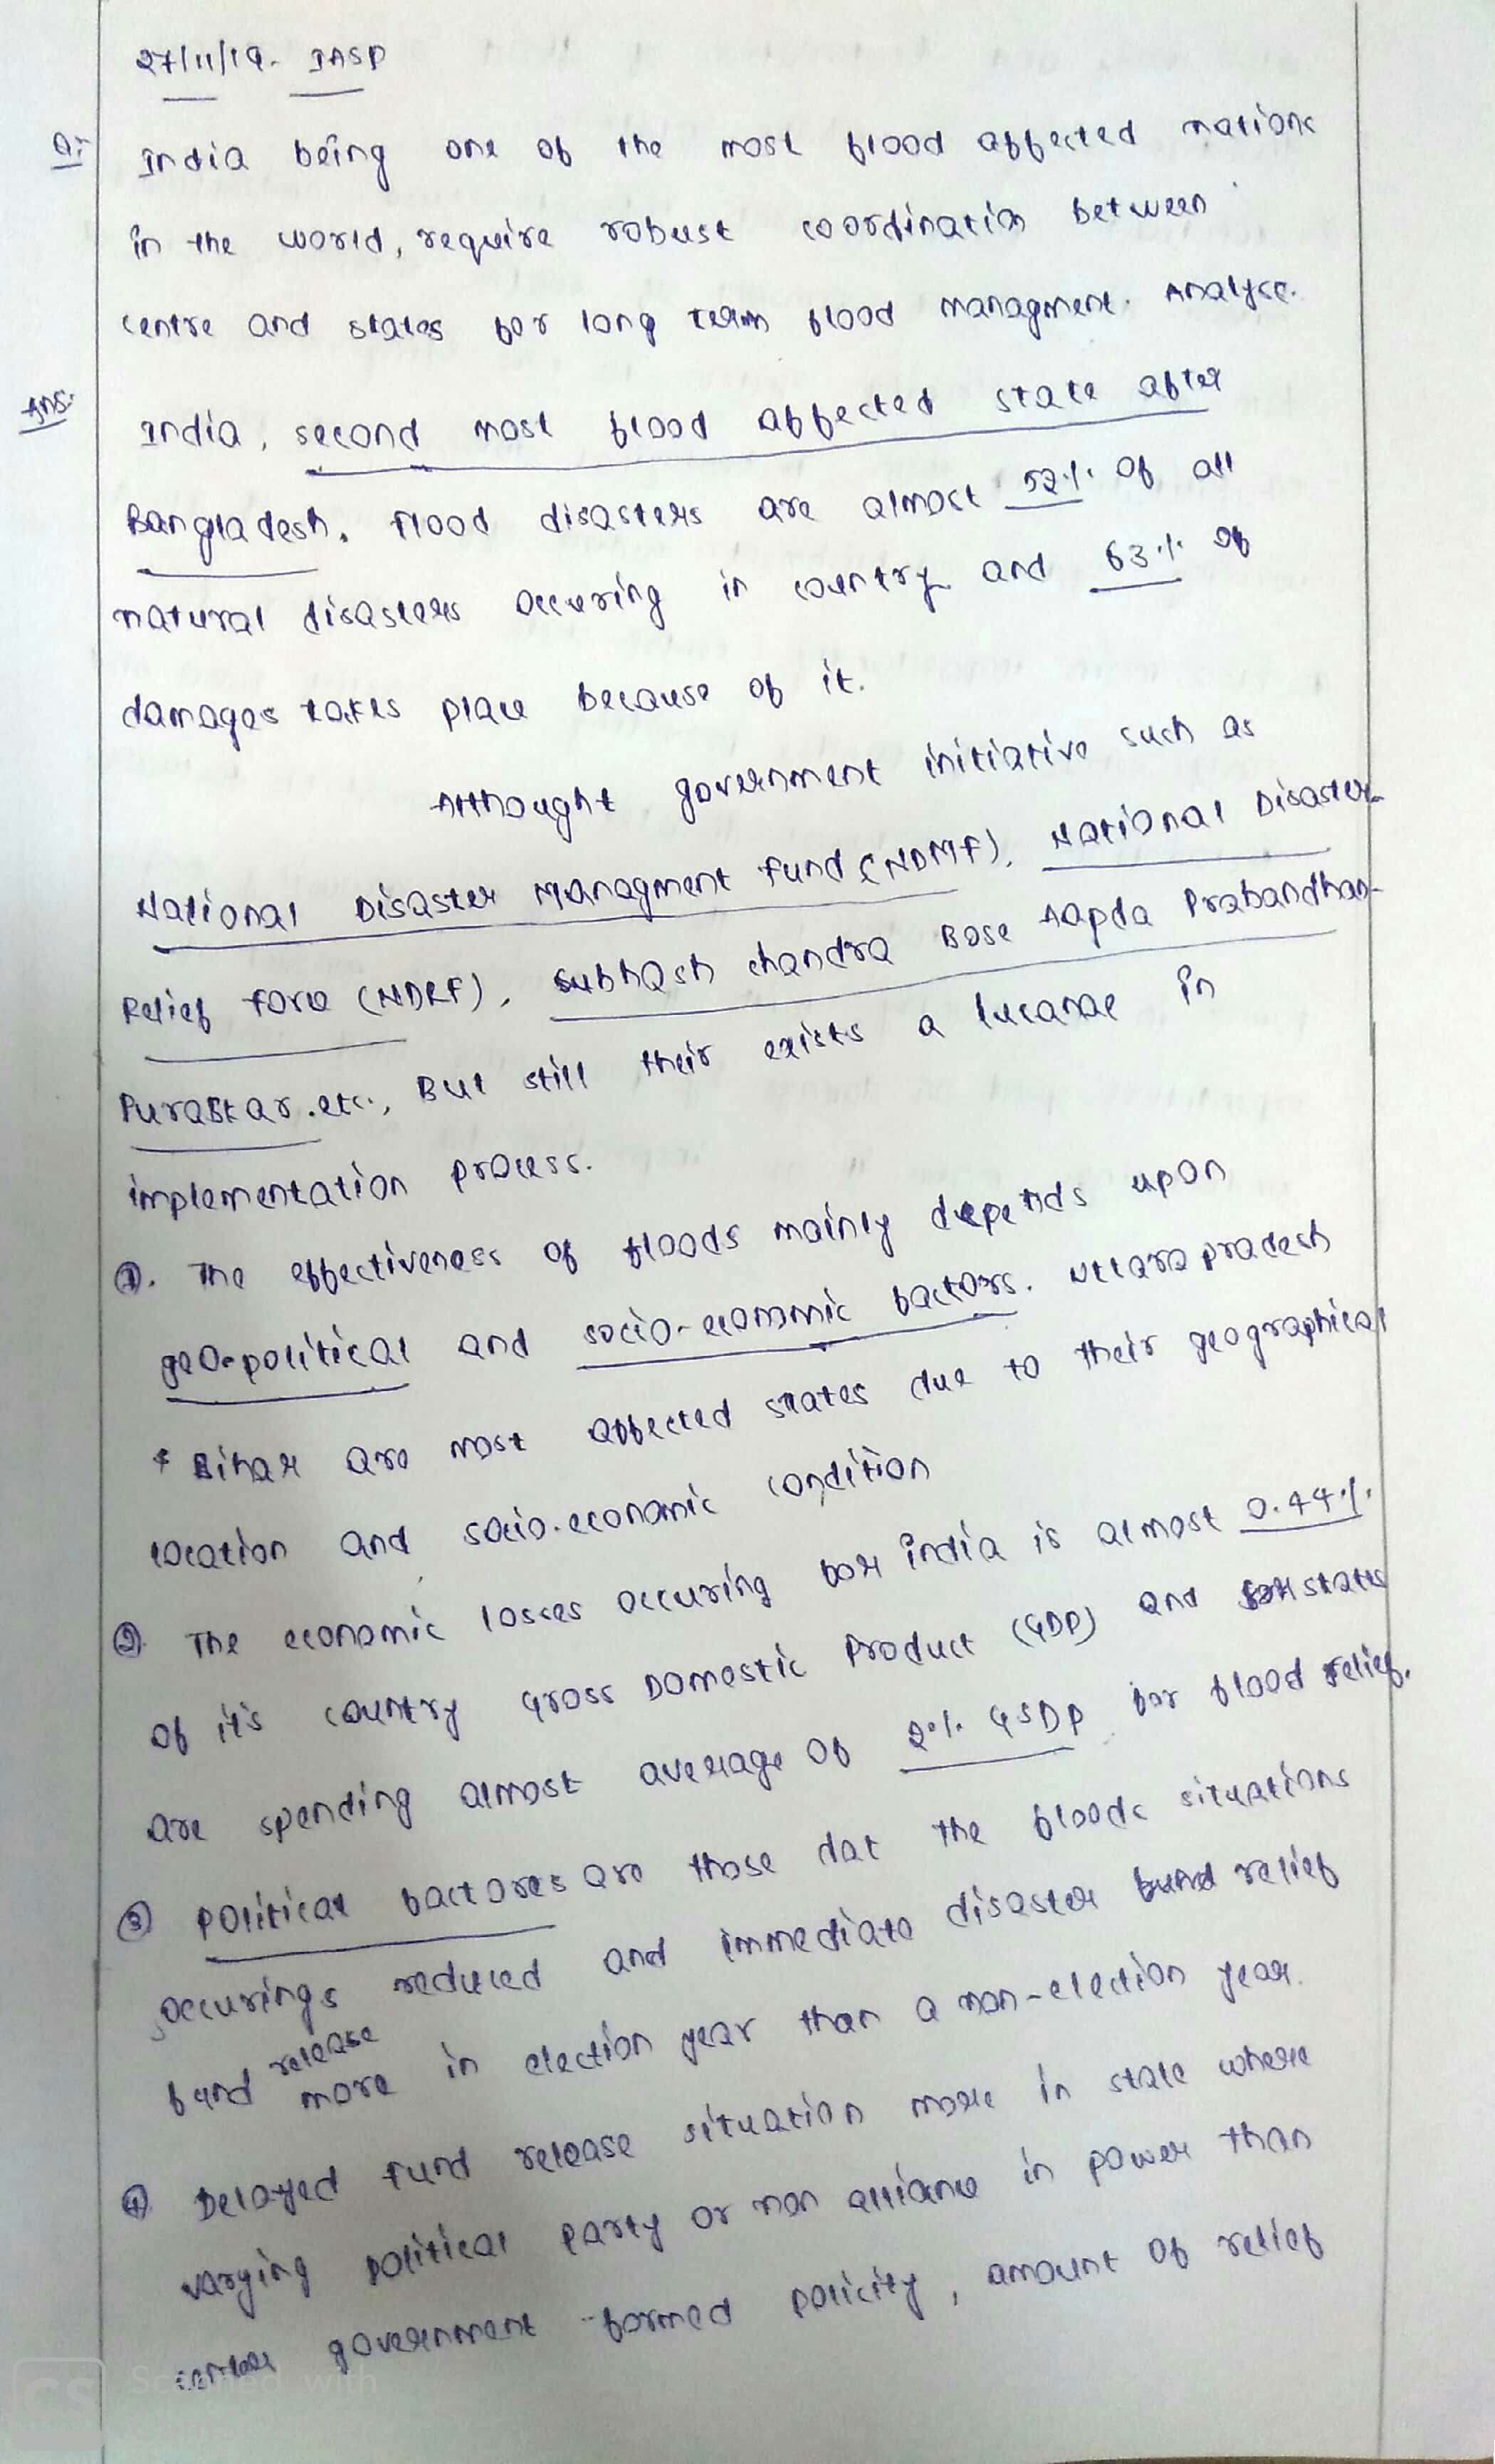 27/11/19. IASP
Q:- India being one of the most flood affected nations
in the world, require robust coordination between
centre and states for long term flood managment. Analyse.
Ans: India, second most flood affected state after
Bangladesh. Flood disasters are almost 52% of all
natural disasters occuring in country and 63% of
damages takes place because of it.
Althought government initiative such as
National Disaster Managment Fund (NDMF), National Disaster
Relief Force (NDRF), Subhash Chandra Bose Aapda Prabandhan
Puraskar.etc., But still their exists a lucanae in
implementation process.
①. The effectiveness of floods mainly depends upon
geo-political and socio-economic factors. Uttara pradesh
& Bihar are most affected states due to their geographical
location and socio-economic condition
②. The economic losses occuring for india is almost 0.44%
of it's country Gross Domestic Product (GDP) and states
are spending almost average of 2% GSDP for flood relief.
③ Political factores are those dat the floods situations
occurings reduced and immediate disaster relief
fund release more in election year than a non-election year.
④ Delayed fund release situation more in state where
varying political party or non alliance in power than
government formed policity, amount of relief
CS Scanned with